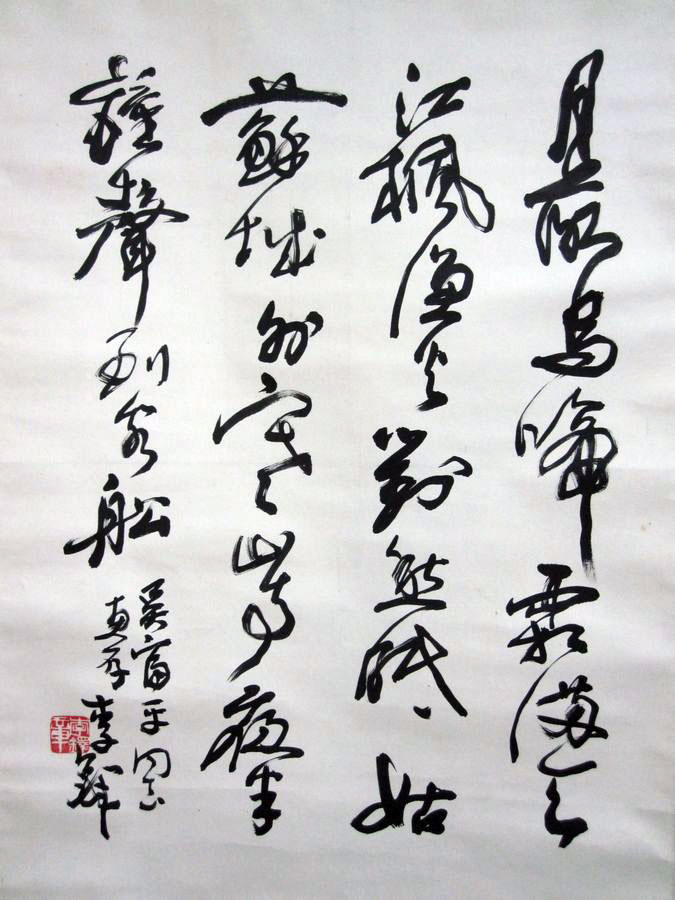 月落烏啼霜滿天
江楓漁火對愁眠姑
蘇城外寒山寺夜半
鐘聲到客船
吴富平同志
惠存
李鐸